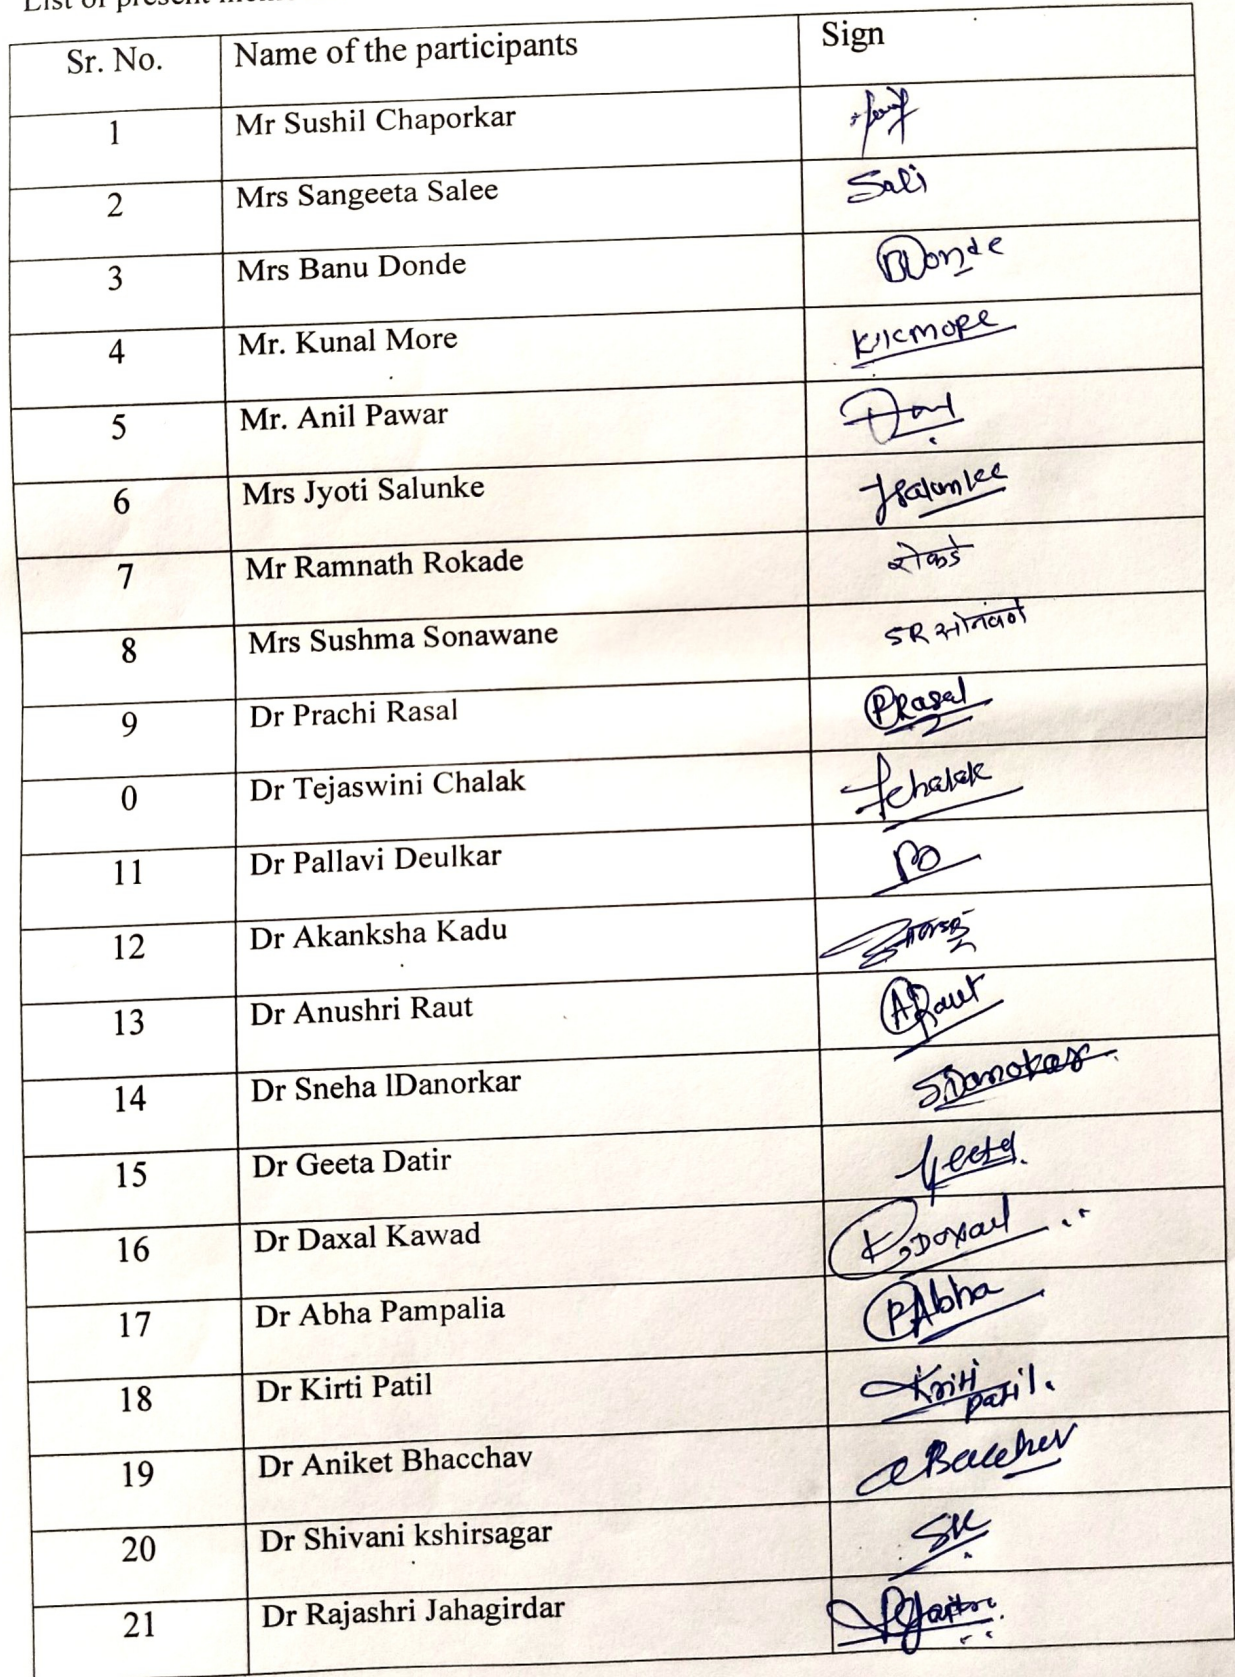 List of present
Sr. No. Name of the participants Sign
1 Mr Sushil Chaporkar
2 Mrs Sangeeta Salee Sali
3 Mrs Banu Donde Donde
4 Mr. Kunal More KKMORE
5 Mr. Anil Pawar
6 Mrs Jyoti Salunke JSalunkee
7 Mr Ramnath Rokade रोकडे
8 Mrs Sushma Sonawane SR सोनवणे
9 Dr Prachi Rasal PRasal
0 Dr Tejaswini Chalak Tchalak
11 Dr Pallavi Deulkar
12 Dr Akanksha Kadu
13 Dr Anushri Raut ARaut
14 Dr Sneha lDanorkar S.Danorkar
15 Dr Geeta Datir Geeta
16 Dr Daxal Kawad K.Daxal
17 Dr Abha Pampalia PAbha
18 Dr Kirti Patil Kriti
patil.
19 Dr Aniket Bhacchav
20 Dr Shivani kshirsagar SK
21 Dr Rajashri Jahagirdar